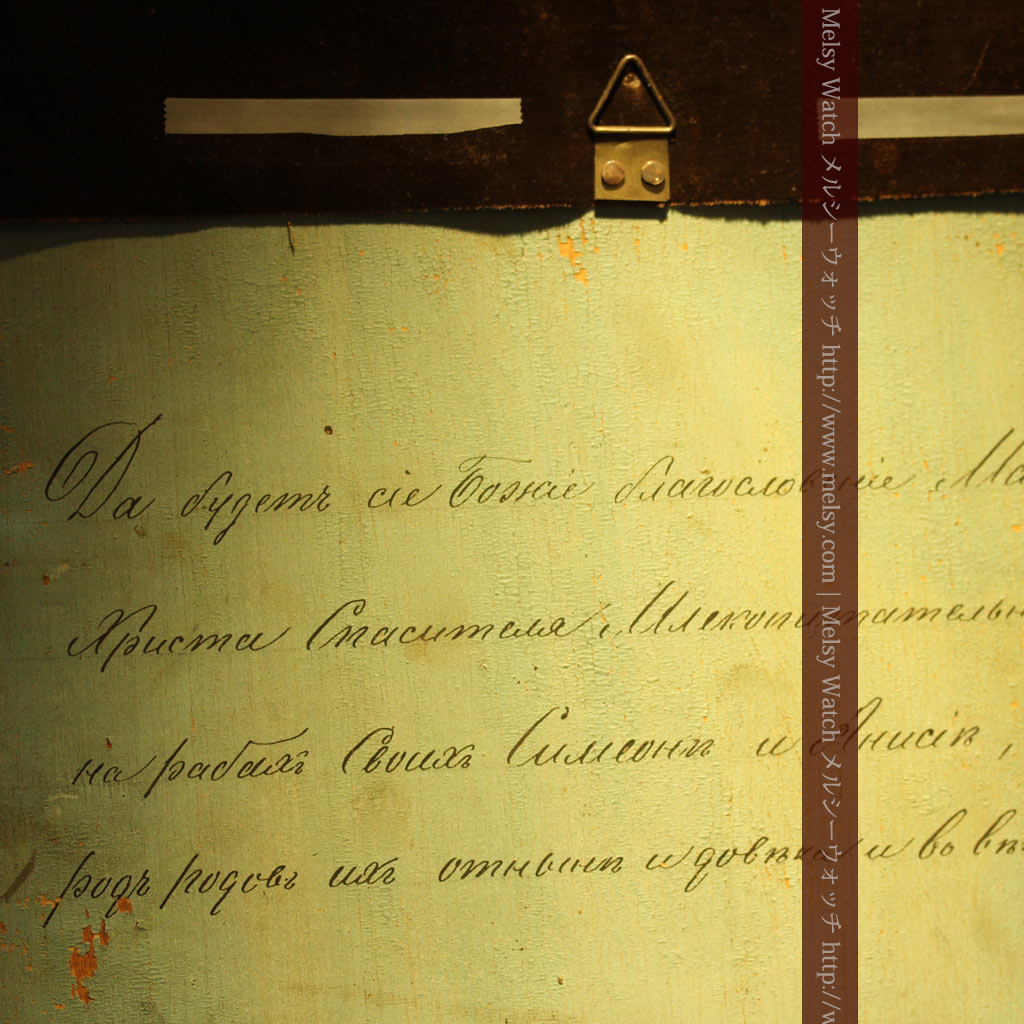 Да будетъ сіе Божіе благословніе Ма
Христа Спасителя, Млекопитательн
на рабахъ Своихъ Симеонѣ и Анисіѣ,
родъ родовъ ихъ отнынѣ и довѣка и во вѣ
Melsy Watch メルシーウォッチ http://www.melsy.com | Melsy Watch メルシーウォッチ http://w